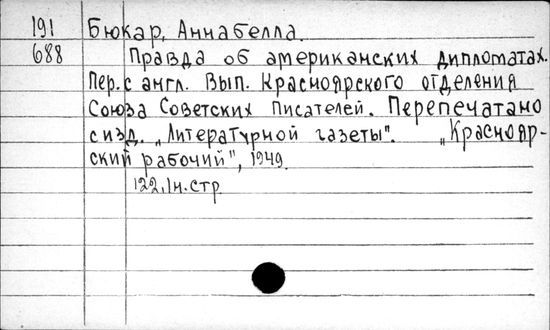 191 Бюкар, Аннабелла.
688 Правда об американских дипломатах.
Пер. с англ. Вып. Красноярского отделения
Союза Советских Писателей. Перепечатано
с изд. „Литературной газеты". „Краснояр-
ский рабочий", 1949.
122, 1н. стр